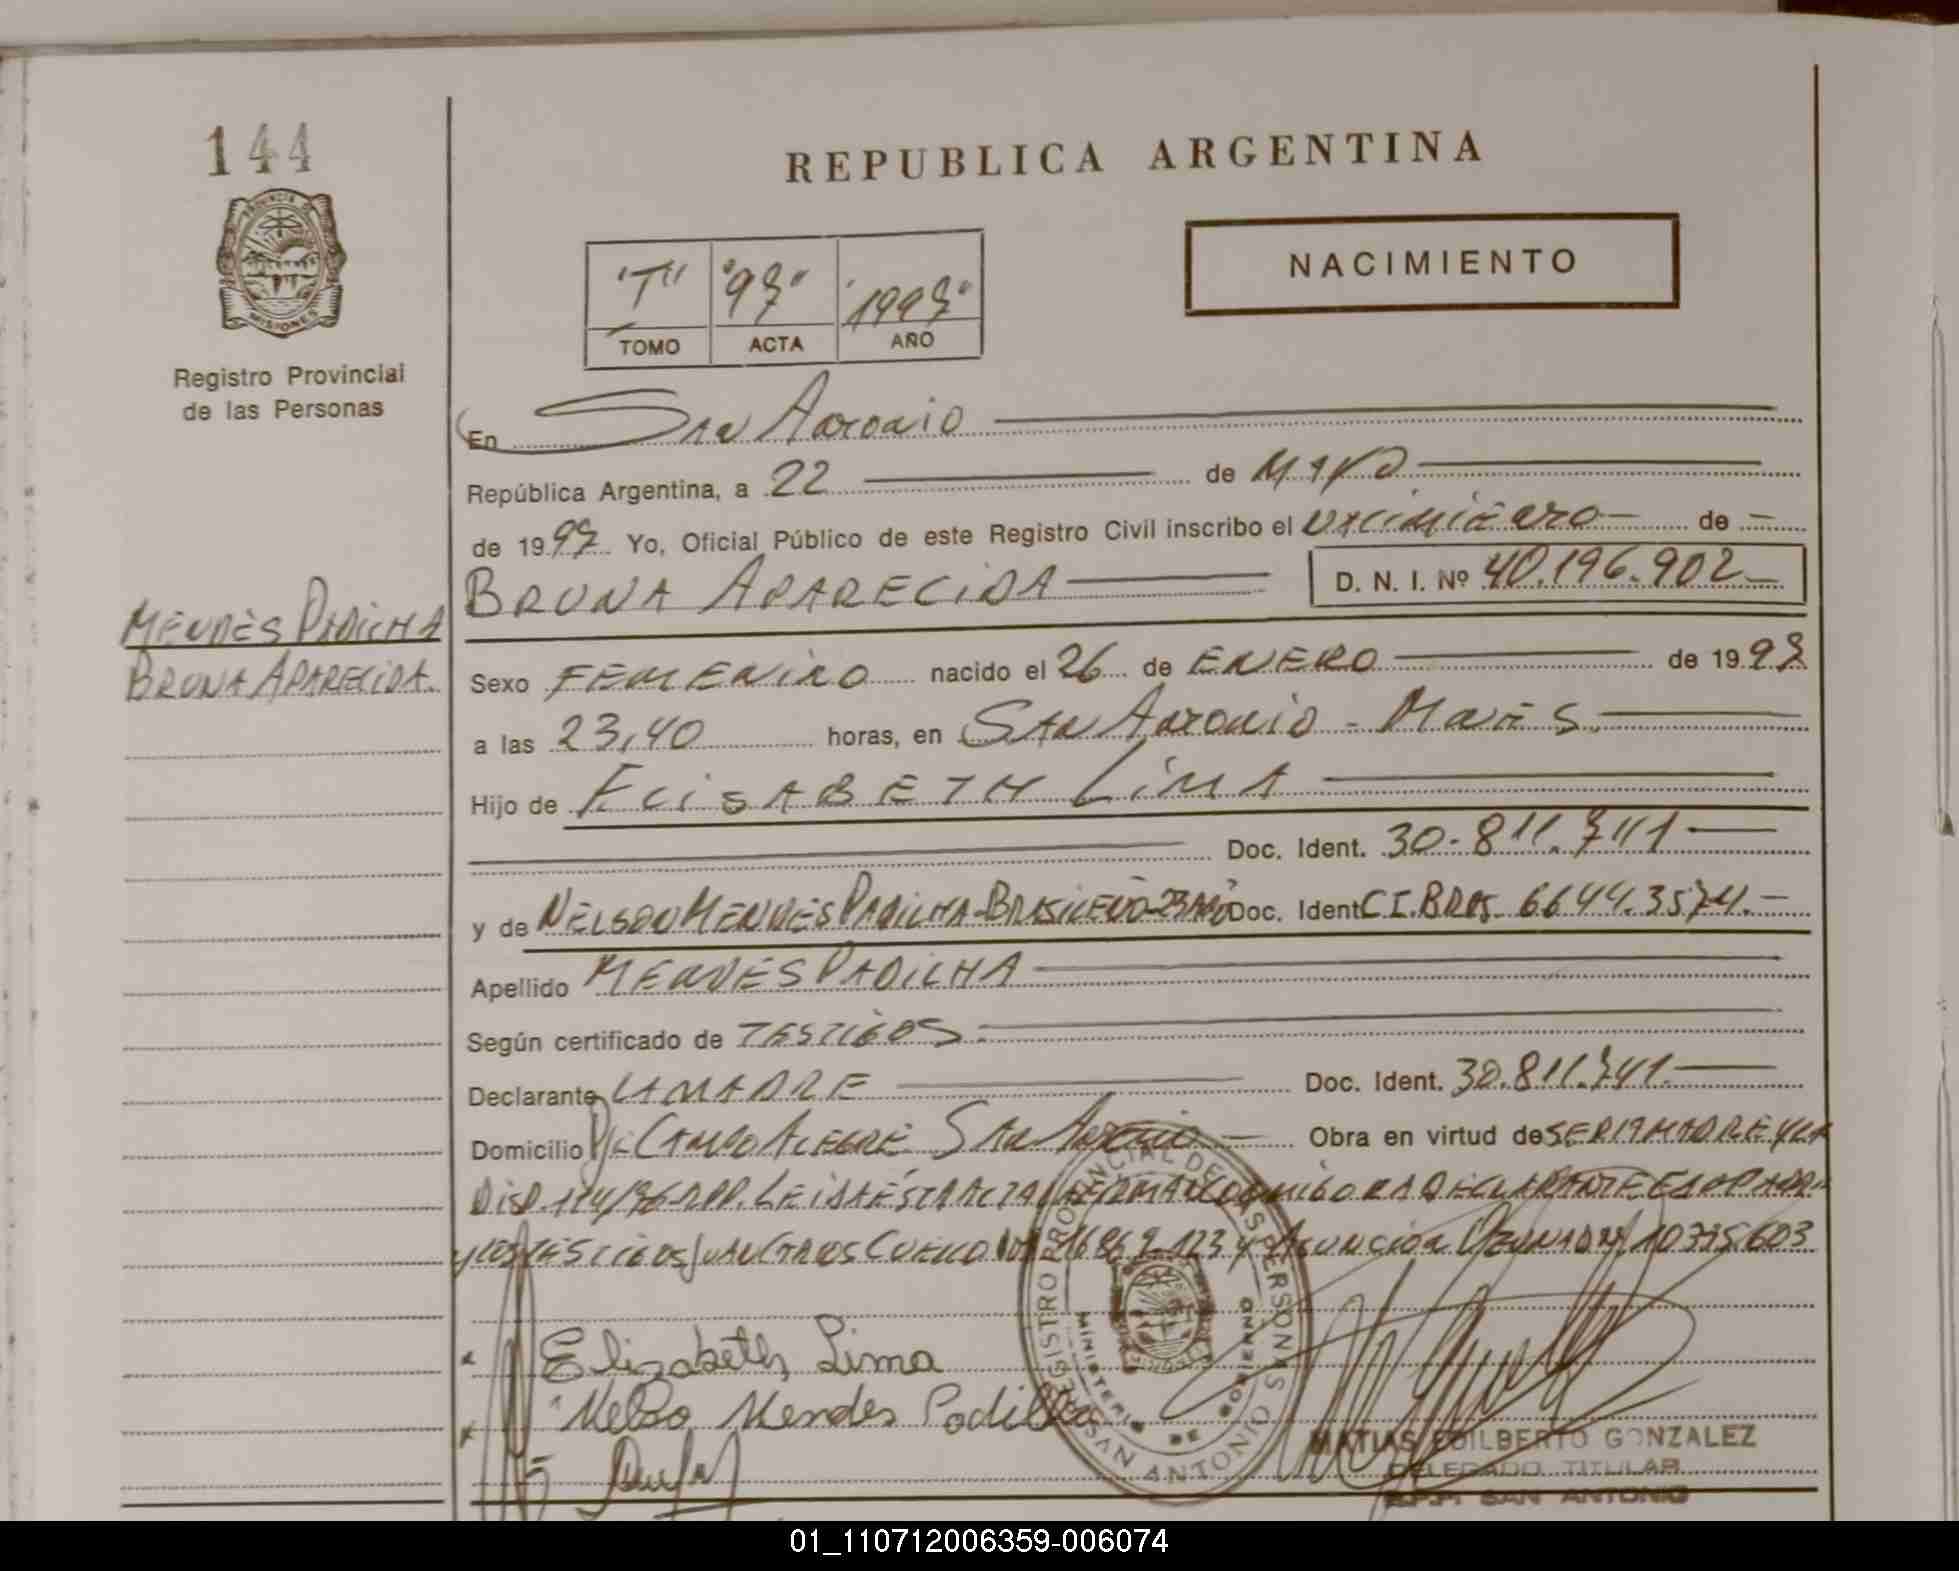 144
REPUBLICA ARGENTINA
PROVINCIA DE MISIONES
NACIMIENTO
"T" "97" "1997"
TOMO ACTA AÑO
Registro Provincial
de las Personas
En San Antonio
República Argentina, a 22 de MAYO
de 1997 Yo, Oficial Público de este Registro Civil inscribo el nacimiento de
BRUNA APARECIDA D. N. I. Nº 40.196.902
MENDES PADILHA
BRUNA APARECIDA.
Sexo FEMENINO nacido el 26 de ENERO de 1997
a las 23,40 horas, en San Antonio - Mnes.
Hijo de ELISABETH LIMA
Doc. Ident. 30.811.741
y de NELSON MENDES PADILHA-BRASILEÑO-23 AÑOS Doc. Ident C.I.BRAS. 6644.3574.
Apellido MENDES PADILHA
Según certificado de TESTIGOS.
Declarante LA MADRE Doc. Ident. 30.811.741.
Domicilio CAMPO ALEGRE San Antonio Obra en virtud de SER LA MADRE Y LA
DISP. 114/96 RPP. LEIDA ESTA ACTA LA FIRMAN CONMIGO LA DECLARANTE EL PADRE
Y LOS TESTIGOS JUAN CARLOS CUENCA 16.869.123 Y ASUNCION 10335603
Elizabeth Lima
Nelso Mendes Padilha
REGISTRO PROVINCIAL DE LAS PERSONAS
MINISTERIO DE GOBIERNO
SAN ANTONIO
MATIAS EDILBERTO GONZALEZ
DELEGADO TITULAR
R.P.P. SAN ANTONIO
01_110712006359-006074